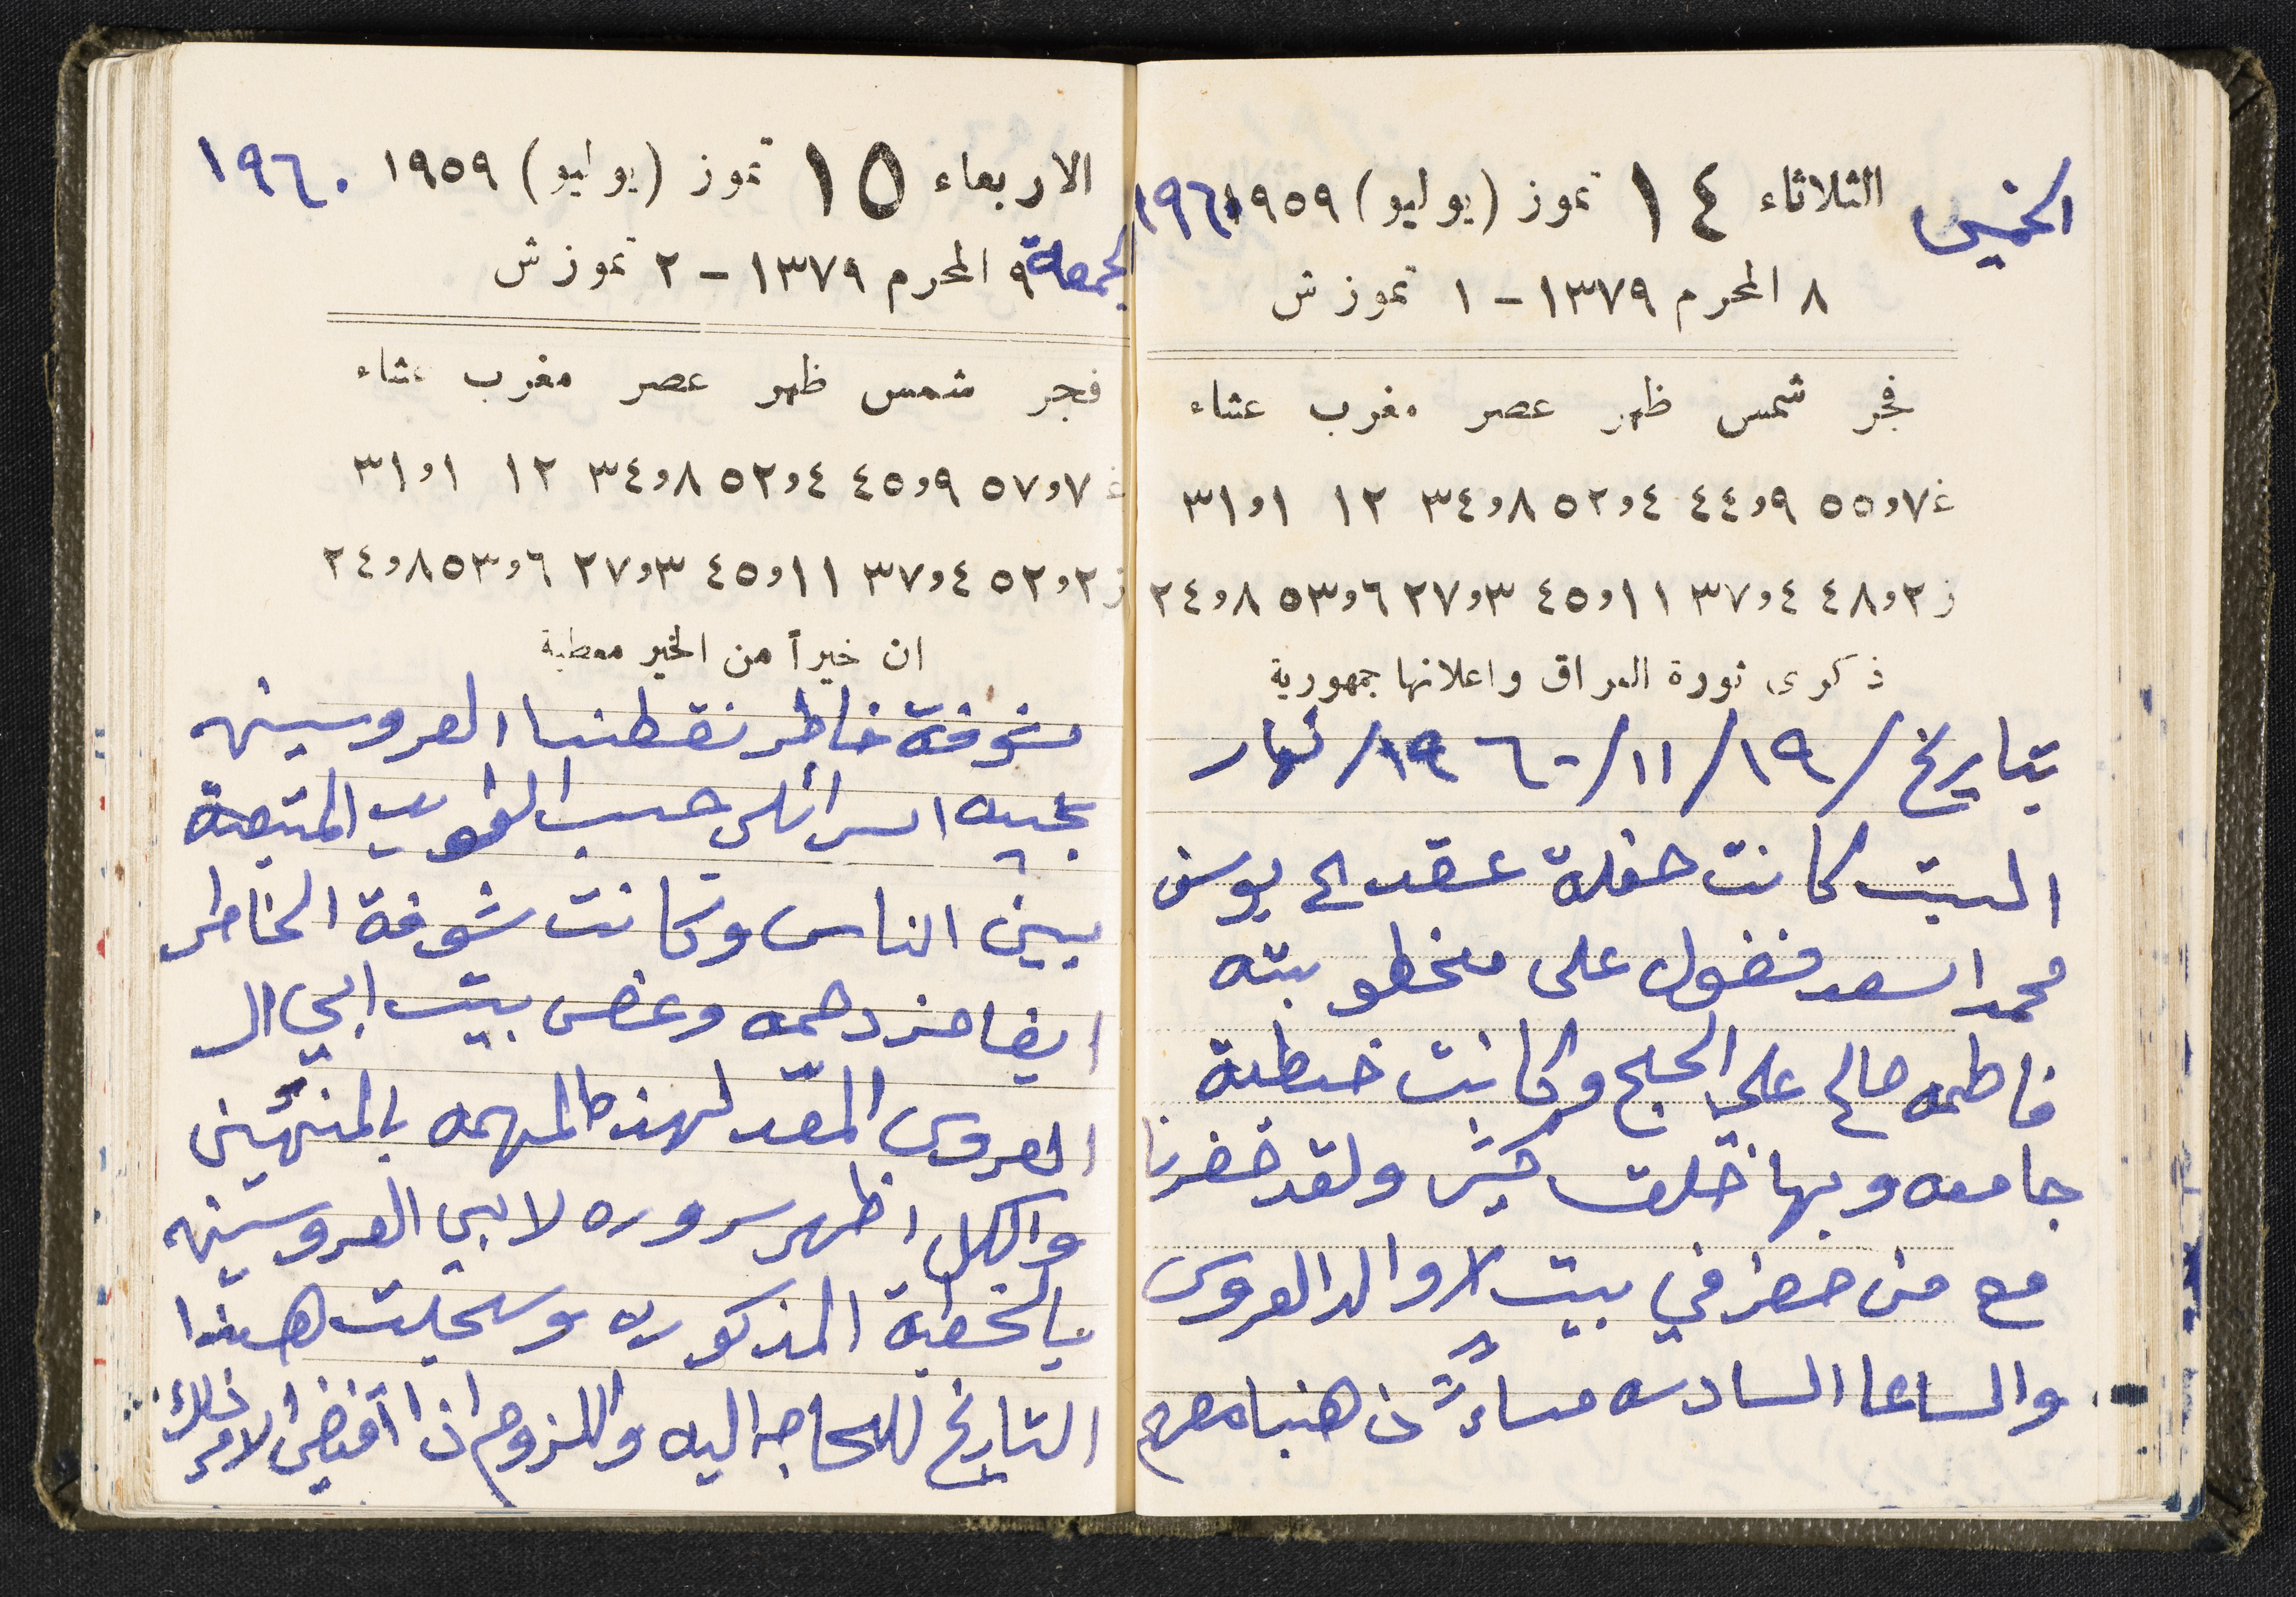 الخميس الثلاثاء ١٤ تموز (يوليو) ١٩٥٩ ١٩٦٠
٨ المحرم ١٣٧٩ – ١ تموز ش
فجر شمس ظهر عصر مغرب عشاء
غ ٧و٥٥ ٩و٤٤ ٤و٥٢ ٨و٣٤ ١٢ ١و٣١
ز ٢و٤٨ ٤و٣٧ ١١و٤٥ ٣و٢٧ ٦و٥٣ ٨و٢٤
ذكرى ثورة العراق واعلانها جمهورية
بتاريخ /١٩/ ١١/ ١٩٦٠/ نهار
السبت كانت حفلة عقد الى يوسف
محمد اسعد فضول على مخطوبته
فاطمه صالح علي الحلح وكانت خطبة
جامعه وبها خلق كثير ولقد حضرنا
مع من حضر في بيت لا والد العروس
والساعا السادسه مساءً ذهنبا معهم
الاربعاء ١٥ تموز (يوليو) ١٩٥٩ ١٩٦٠
الجمعة ٩ المحرم ١٣٧٩ – ٢ تموز ش
فجر شمس ظهر عصر مغرب عشاء
غ ٧و٥٧ ٩و٤٥ ٤و٥٢ ٨و٣٤ ١٢ ١و٣١
ز ٢و٥٢ ٤و٣٧ ١١و٤٥ ٣و٢٧ ٦و٥٣ ٨و٢٤
ان خيراً من الخير معطية
شوفة خاطر نقطنا العروسين
بجنيه اسرائلي حسب المتبعة
بين الناس وكانت شوفة الخاطر
ايضا مزدحمه وغص بيت ابي ال
العروس المعّد لهذه المهمه بالمنهئين
والكل اظهر سروره لابي العروسين
بالخطبة المذكوره وسجلت هذا
التاريخ للحاجه اليه واللزوم اذا اقتضى الامر ذلك